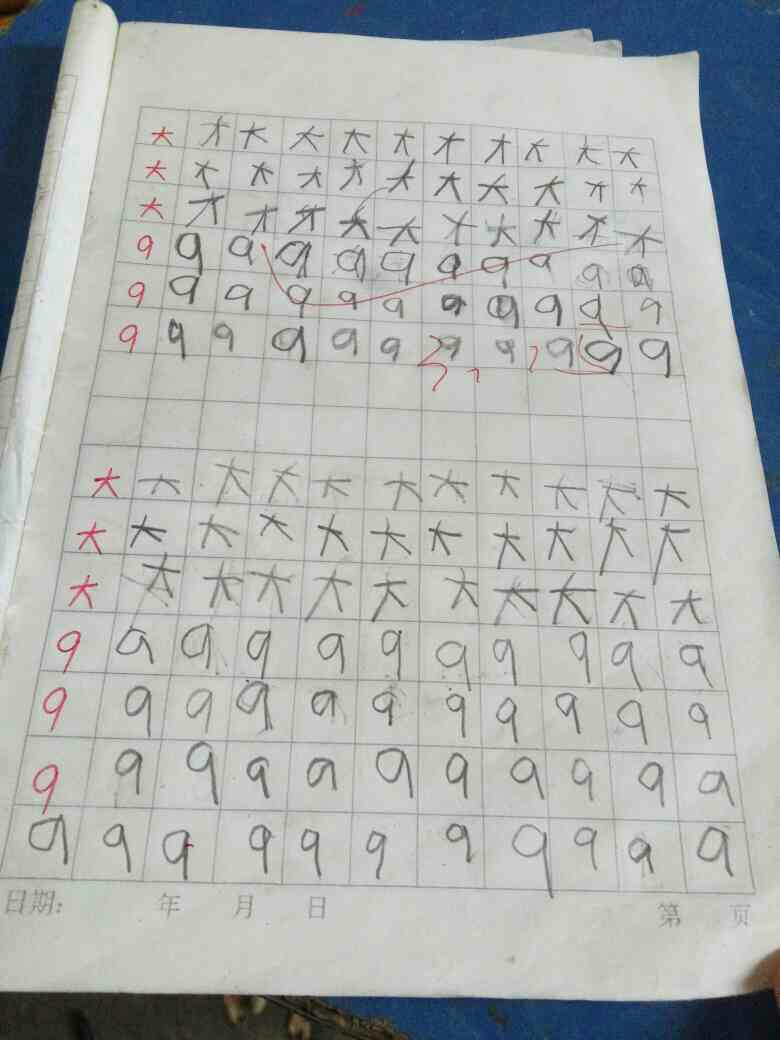 大 大 大 大 大 大 大 大 大 大 大
大 大 大 大 大 大 大 大 大 大 大
大 大 大 大 大 大 大 大 大 大 大
9 9 9 9 9 9 9 9 9 9 9
9 9 9 9 9 9 9 9 9 9 9
9 9 9 9 9 9 9 9 9 9 9
大 大 大 大 大 大 大 大 大 大 大
大 大 大 大 大 大 大 大 大 大 大
大 大 大 大 大 大 大 大 大 大 大
9 9 9 9 9 9 9 9 9 9 9
9 9 9 9 9 9 9 9 9 9 9
9 9 9 9 9 9 9 9 9 9 9
9 9 9 9 9 9 9 9 9 9 9
日期: 年 月 日 第 页